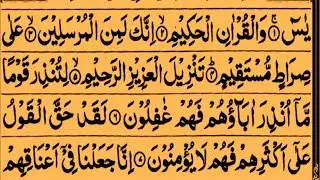 يٰسٓ ۝١ وَالْقُرْاٰنِ الْحَكِيْمِ ۝٢ اِنَّكَ لَمِنَ الْمُرْسَلِيْنَ ۝٣ عَلٰى
صِرَاطٍ مُّسْتَقِيْمٍ ۝٤ تَنْزِيْلَ الْعَزِيْزِ الرَّحِيْمِ ۝٥ لِتُنْذِرَ قَوْمًا
مَّاۤ اُنْذِرَ اٰبَآؤُهُمْ فَهُمْ غٰفِلُوْنَ ۝٦ لَقَدْ حَقَّ الْقَوْلُ
عَلٰۤى اَكْثَرِهِمْ فَهُمْ لَا يُؤْمِنُوْنَ ۝٧ اِنَّا جَعَلْنَا فِيْۤ اَعْنَاقِهِمْ